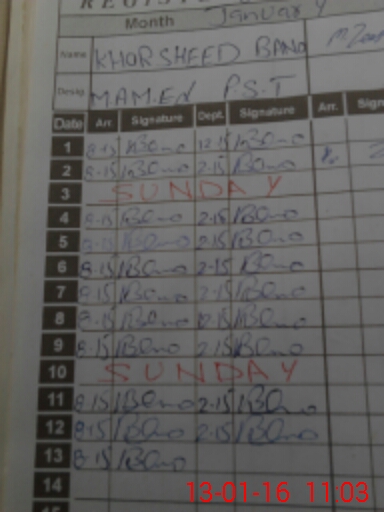 Month January
Name KHORSHEED BANO
Desig. MAM.EN P.S.T
Date Arr. Signature Dept. Signature Arr. Sign
1 8-15 KBano 12-15 KBano
2 8-15 KBano 2-15 KBano
3 SUNDAY
4 8-15 KBano 2-15 KBano
5 8-15 KBano 2-15 KBano
6 8-15 KBano 2-15 KBano
7 8-15 KBano 2-15 KBano
8 8-15 KBano 12-15 KBano
9 8-15 KBano 2-15 KBano
10 SUNDAY
11 8-15 KBano 2-15 KBano
12 8-15 KBano 2-15 KBano
13 8-15 KBano
14
15
13-01-16 11:03